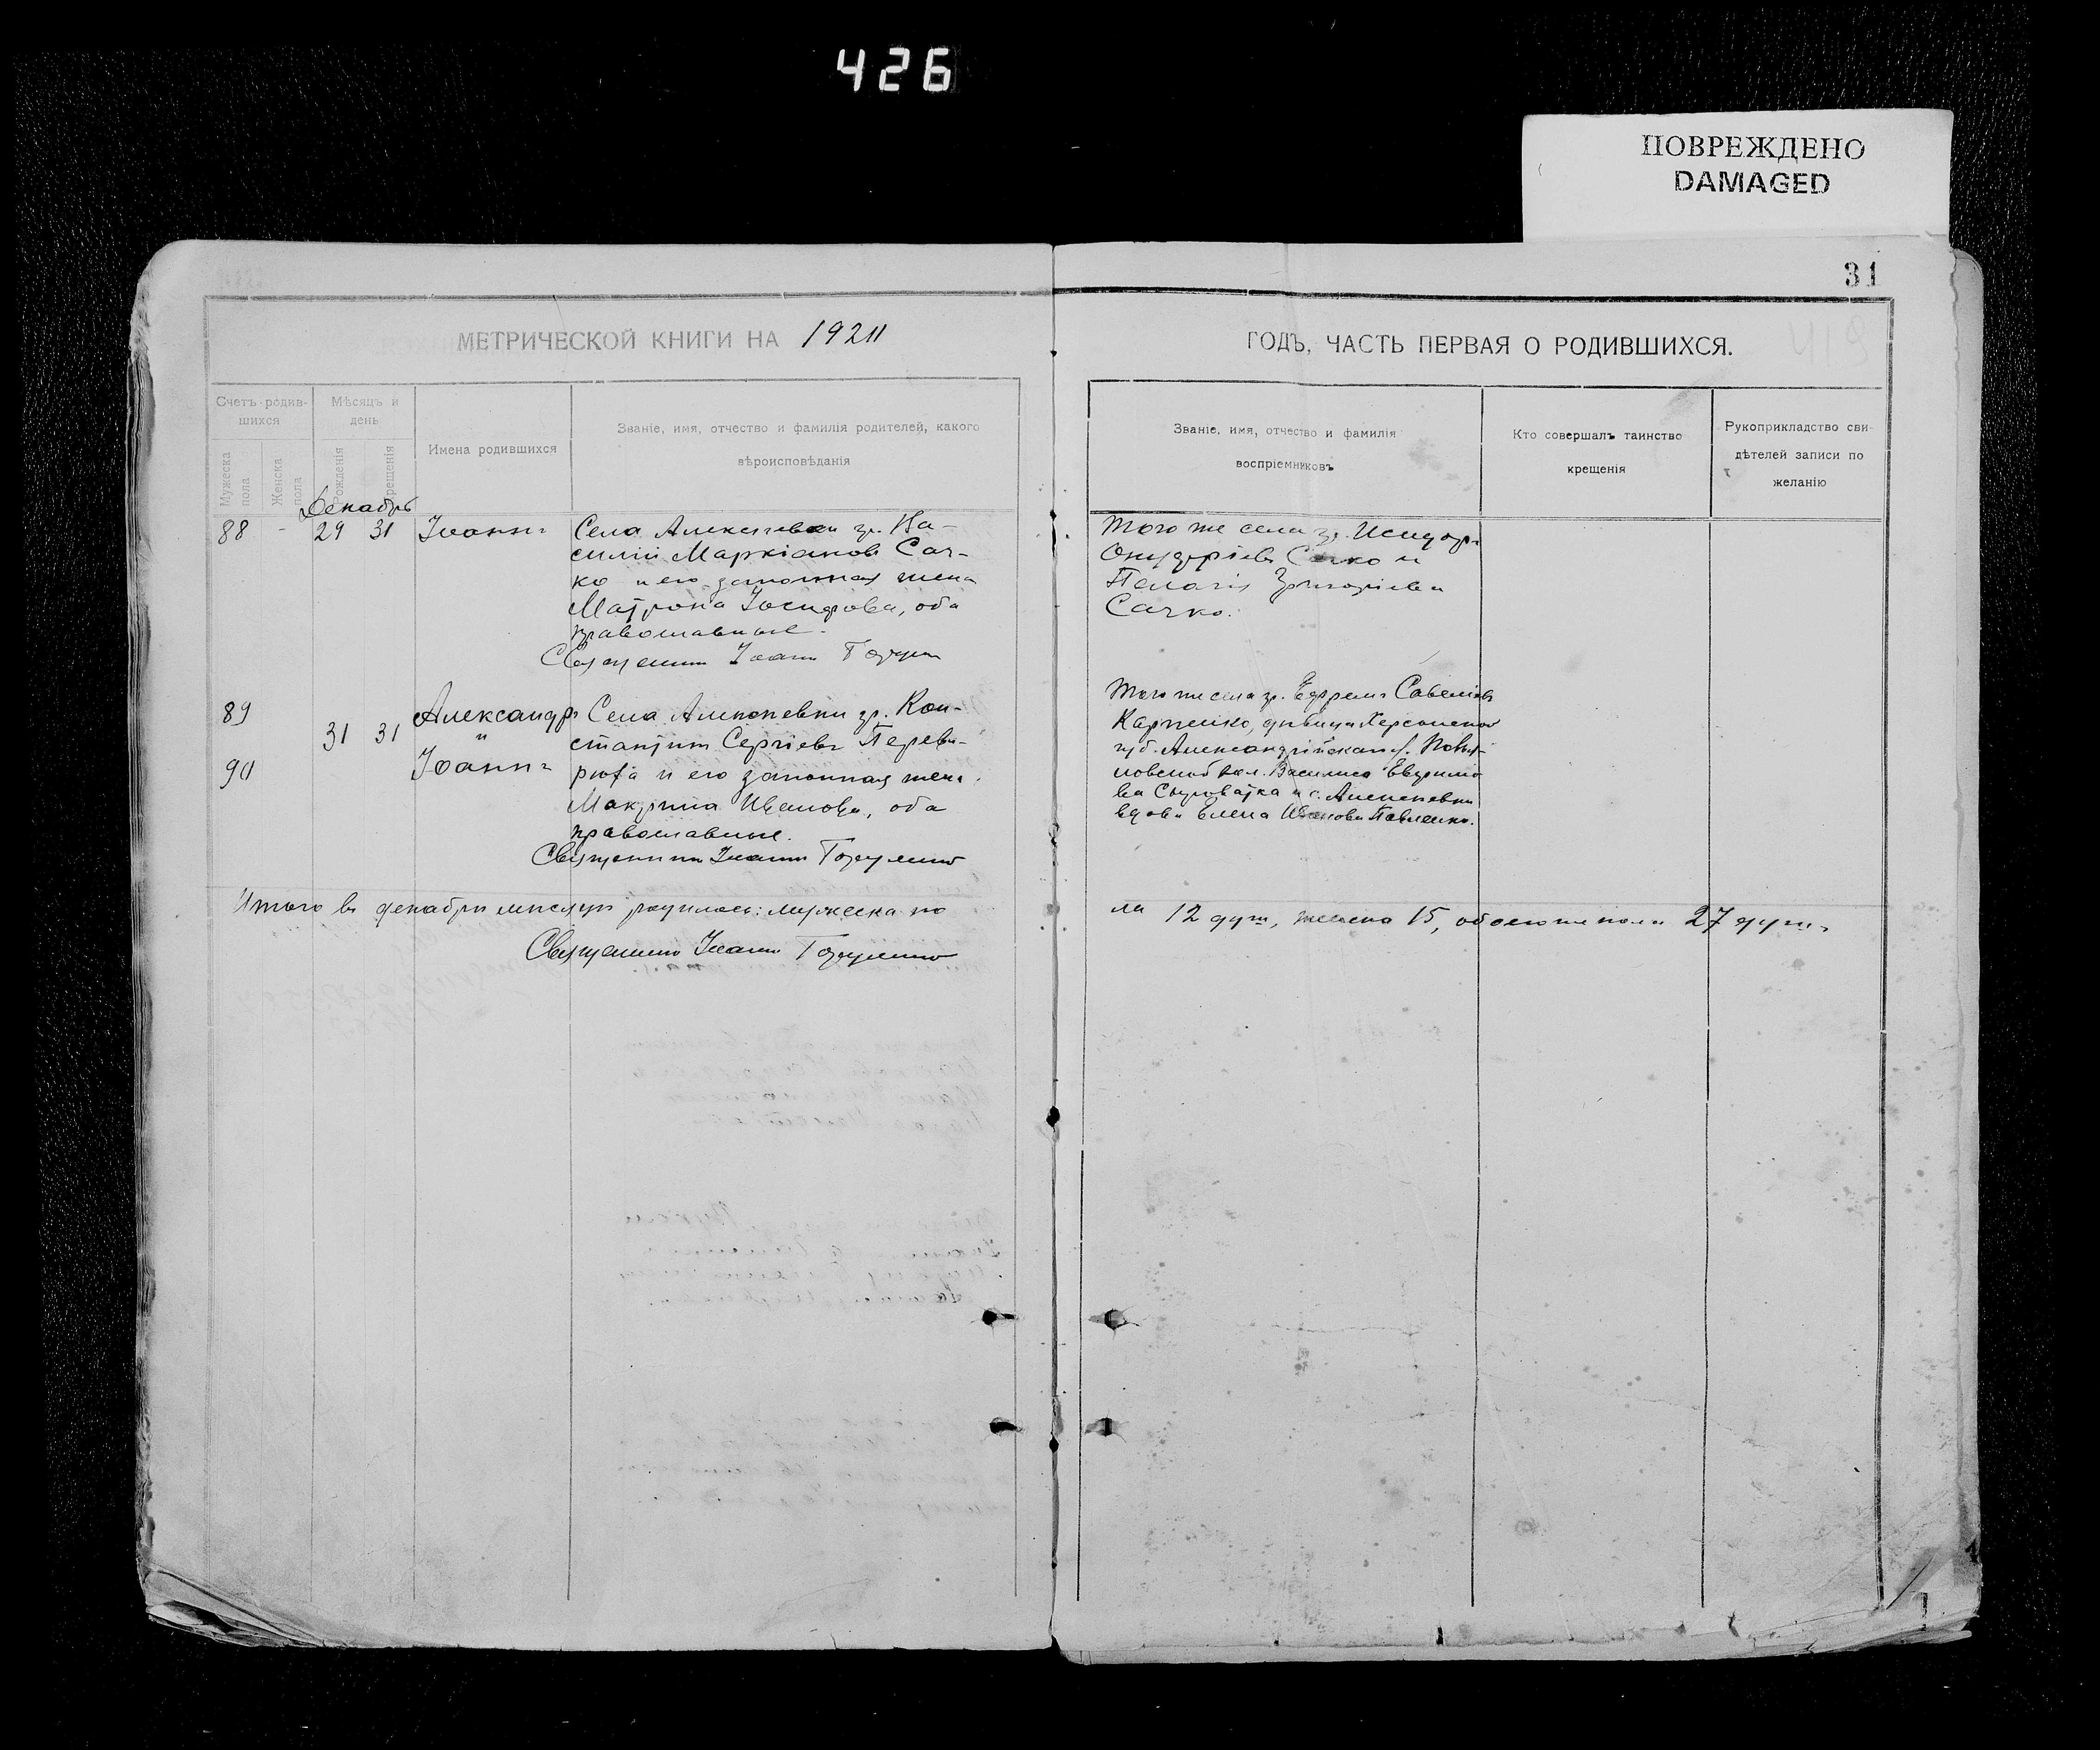 426
ПОВРЕЖДЕНО
DAMAGED
31
МЕТРИЧЕСКОЙ КНИГИ НА 1920
ГОДЪ, ЧАСТЬ ПЕРВАЯ О РОДИВШИХСЯ.
Счетъ родив-
шихся
Мужеска пола
Женска пола
Мѣсяцъ и
день
Рожденія
Крещенія
Имена родившихся
Званіе, имя, отчество и фамилія родителей, какого
вѣроисповѣданія
Званіе, имя, отчество и фамилія
воспріемниковъ
Кто совершалъ таинство
крещенія
Рукоприкладство сви-
дѣтелей записи по
желанію
Декабрь
88 - 29 31 Іоаннъ
Села Алексеевки гр. Ва-
силій Маркіановъ Сач-
ко и его законная жена
Матрона Іосифова, оба
православные.
Священник Іоанн
Того же села гр. Исидоръ
Онуфріевъ Сачко и
Пелагія Григоріева
Сачко.
89 31 31 Александръ
90 Іоаннъ
Села Алексеевки гр. Кон-
стантин Сергіевъ Переве-
и его законная жена
Макрина Иванова, оба
православные.
Священник Іоанн
Того же села гр. Ефремъ Савеліевъ
Карпенко, девица Херсонской
губ. Александрійскаго у.
вол. Василиса
ва Сыроватка и с. Алексеевки
вдова Елена Иванова Павленко.
Итого въ декабре месяце родилось: мужеска по
ла 12 душ, женска 15, обоего же пола 27 душъ
Священник Іоанн